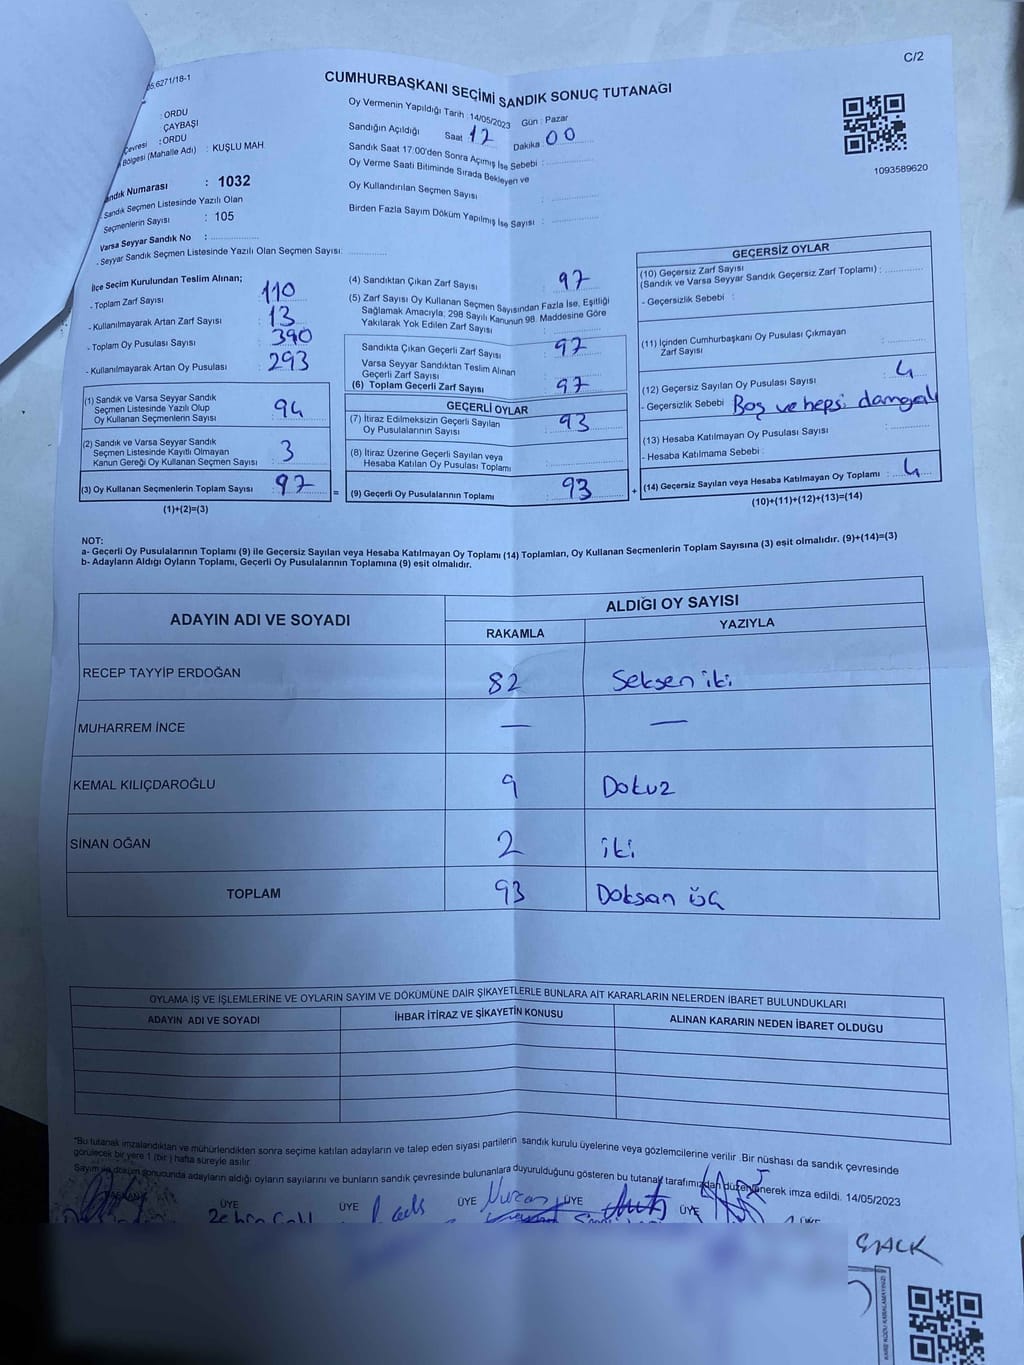 6271/18-1
C/2
CUMHURBAŞKANI SEÇİMİ SANDIK SONUÇ TUTANAĞI
: ORDU
ÇAYBAŞI
Çevresi : ORDU
Bölgesi (Mahalle Adı) : KUŞLU MAH
Sandık Numarası : 1032
- Sandık Seçmen Listesinde Yazılı Olan
Seçmenlerin Sayısı : 105
Varsa Seyyar Sandık No :
- Seyyar Sandık Seçmen Listesinde Yazılı Olan Seçmen Sayısı:
Oy Vermenin Yapıldığı Tarih : 14/05/2023 Gün : Pazar
Sandığın Açıldığı Saat 17 Dakika 00
Sandık Saat 17:00'den Sonra Açımış İse Sebebi :
Oy Verme Saati Bitiminde Sırada Bekleyen ve
Oy Kullandırılan Seçmen Sayısı :
Birden Fazla Sayım Döküm Yapılmış İse Sayısı :
1093589620
İlçe Seçim Kurulundan Teslim Alınan;
- Toplam Zarf Sayısı : 110
- Kullanılmayarak Artan Zarf Sayısı : 13
- Toplam Oy Pusulası Sayısı : 390
- Kullanılmayarak Artan Oy Pusulası : 293
(1) Sandık ve Varsa Seyyar Sandık
Seçmen Listesinde Yazılı Olup
Oy Kullanan Seçmenlerin Sayısı : 94
(2) Sandık ve Varsa Seyyar Sandık
Seçmen Listesinde Kayıtlı Olmayan
Kanun Gereği Oy Kullanan Seçmen Sayısı : 3
(3) Oy Kullanan Seçmenlerin Toplam Sayısı : 97
(1)+(2)=(3)
=
(4) Sandıktan Çıkan Zarf Sayısı : 97
(5) Zarf Sayısı Oy Kullanan Seçmen Sayısından Fazla İse, Eşitliği
Sağlamak Amacıyla; 298 Sayılı Kanunun 98. Maddesine Göre
Yakılarak Yok Edilen Zarf Sayısı :
Sandıkta Çıkan Geçerli Zarf Sayısı : 97
Varsa Seyyar Sandıktan Teslim Alınan
Geçerli Zarf Sayısı :
(6) Toplam Geçerli Zarf Sayısı : 97
GEÇERLİ OYLAR
(7) İtiraz Edilmeksizin Geçerli Sayılan
Oy Pusulalarının Sayısı : 93
(8) İtiraz Üzerine Geçerli Sayılan veya
Hesaba Katılan Oy Pusulası Toplamı :
(9) Geçerli Oy Pusulalarının Toplamı : 93
+
GEÇERSİZ OYLAR
(10) Geçersiz Zarf Sayısı
(Sandık ve Varsa Seyyar Sandık Geçersiz Zarf Toplamı) :
- Geçersizlik Sebebi :
(11) İçinden Cumhurbaşkanı Oy Pusulası Çıkmayan
Zarf Sayısı :
(12) Geçersiz Sayılan Oy Pusulası Sayısı : 4
- Geçersizlik Sebebi : Boş ve hepsi damgalı
(13) Hesaba Katılmayan Oy Pusulası Sayısı :
- Hesaba Katılmama Sebebi :
(14) Geçersiz Sayılan veya Hesaba Katılmayan Oy Toplamı : 4
(10)+(11)+(12)+(13)=(14)
NOT:
a- Geçerli Oy Pusulalarının Toplamı (9) ile Geçersiz Sayılan veya Hesaba Katılmayan Oy Toplamı (14) Toplamları, Oy Kullanan Seçmenlerin Toplam Sayısına (3) eşit olmalıdır. (9)+(14)=(3)
b- Adayların Aldığı Oyların Toplamı, Geçerli Oy Pusulalarının Toplamına (9) eşit olmalıdır.
ADAYIN ADI VE SOYADI
ALDIĞI OY SAYISI
RAKAMLA YAZIYLA
RECEP TAYYİP ERDOĞAN 82 Seksen iki
MUHARREM İNCE — —
KEMAL KILIÇDAROĞLU 9 Dokuz
SİNAN OĞAN 2 iki
TOPLAM 93 Doksan üç
OYLAMA İŞ VE İŞLEMLERİNE VE OYLARIN SAYIM VE DÖKÜMÜNE DAİR ŞİKAYETLERLE BUNLARA AİT KARARLARIN NELERDEN İBARET BULUNDUKLARI
ADAYIN ADI VE SOYADI İHBAR İTİRAZ VE ŞİKAYETİN KONUSU ALINAN KARARIN NEDEN İBARET OLDUĞU
*Bu tutanak imzalandıktan ve mühürlendikten sonra seçime katılan adayların ve talep eden siyasi partilerin sandık kurulu üyelerine veya gözlemcilerine verilir .Bir nüshası da sandık çevresinde
görülecek bir yere 1 (bir ) hafta süreyle asılır.
Sayım ve döküm sonucunda adayların aldığı oyların sayılarını ve bunların sandık çevresinde bulunanlara duyurulduğunu gösteren bu tutanak tarafımızdan düzenlenerek imza edildi. 14/05/2023
ÜYE ÜYE ÜYE ÜYE ÜYE